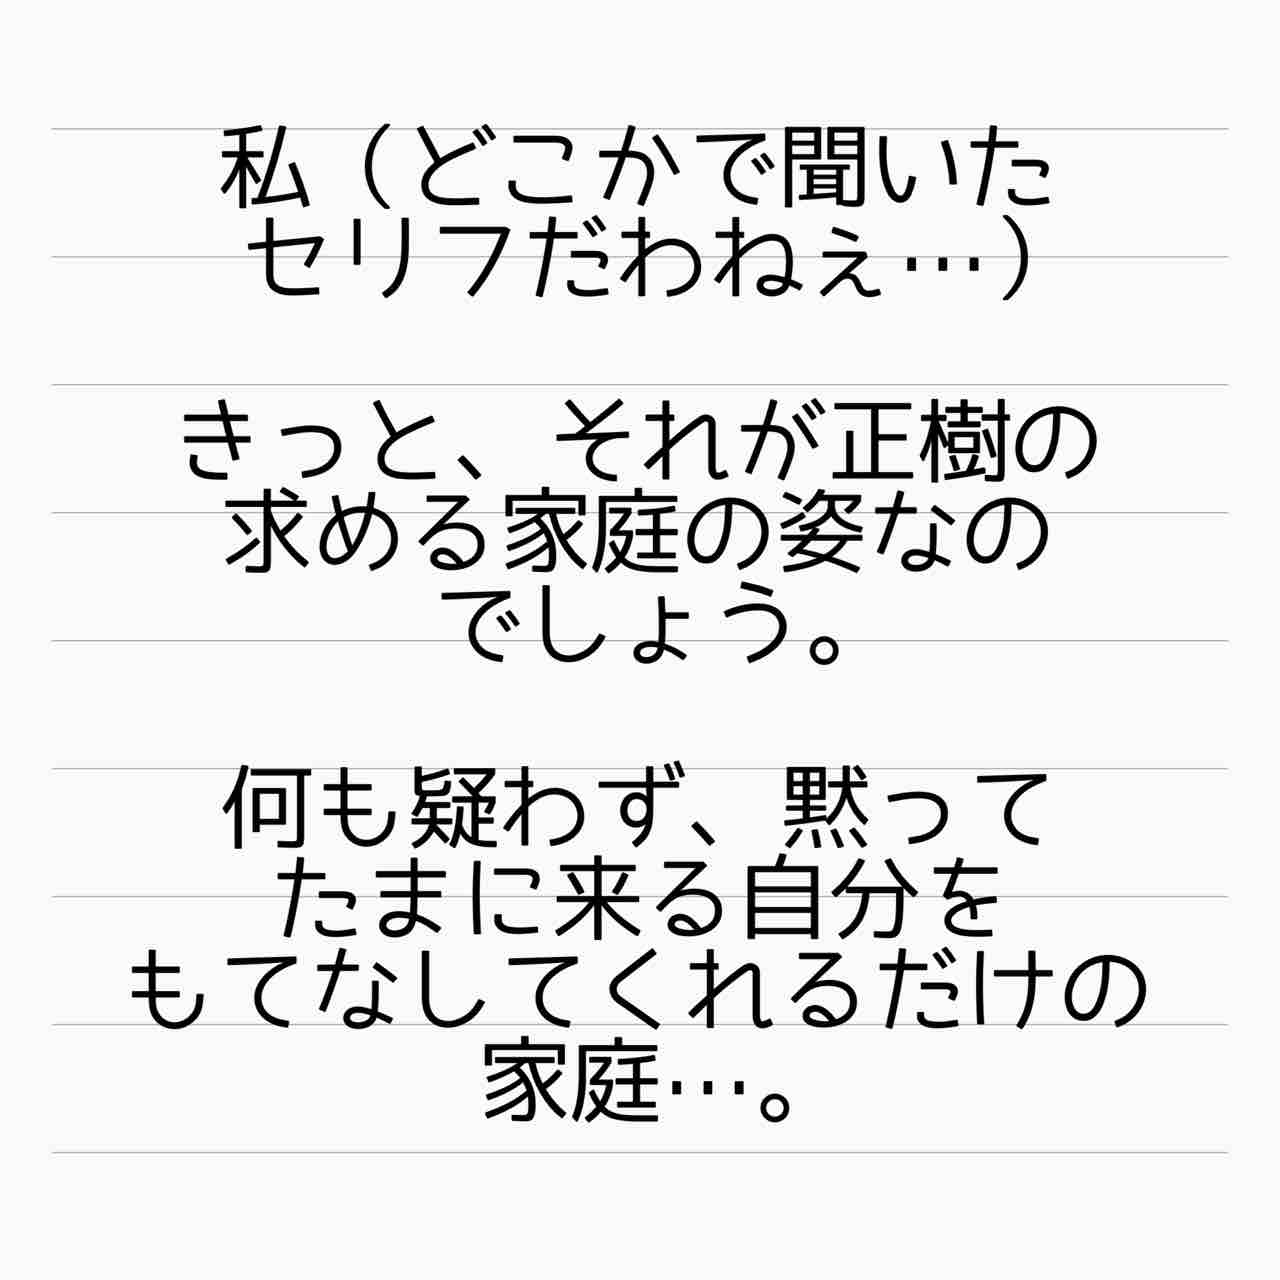 私（どこかで聞いた
セリフだわねぇ…）
きっと、それが正樹の
求める家庭の姿なの
でしょう。
何も疑わず、黙って
たまに来る自分を
もてなしてくれるだけの
家庭…。